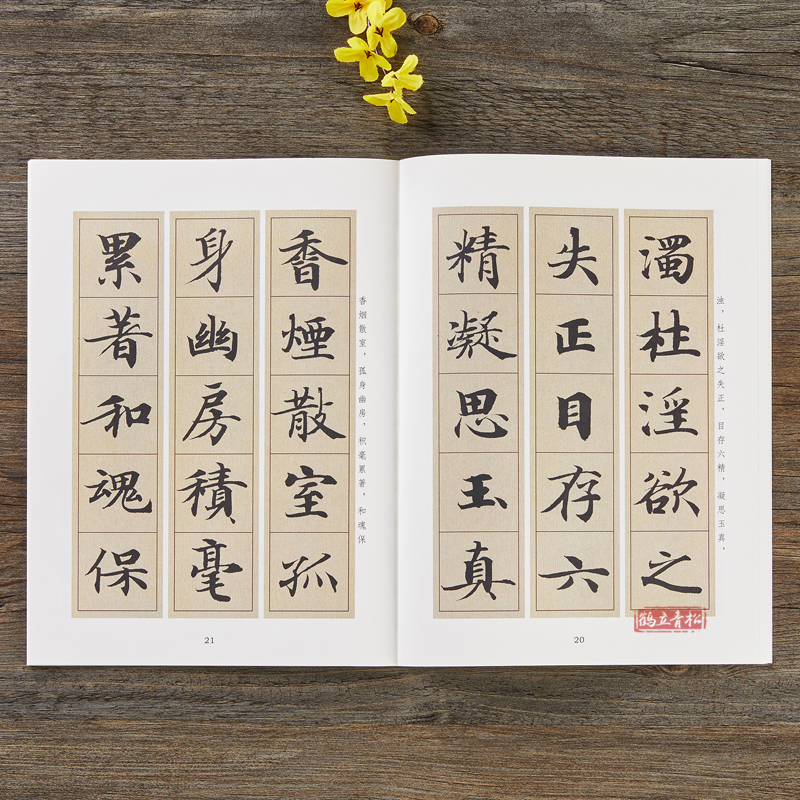 濁杜淫欲之
失正目存六
精凝思玉真
浊，杜淫欲之失正，目存六精，凝思玉真，
20
香煙散室孤
身幽房積毫
累著和魂保
香烟散室，孤身幽房，积毫累著，和魂保
21
鹤立青松